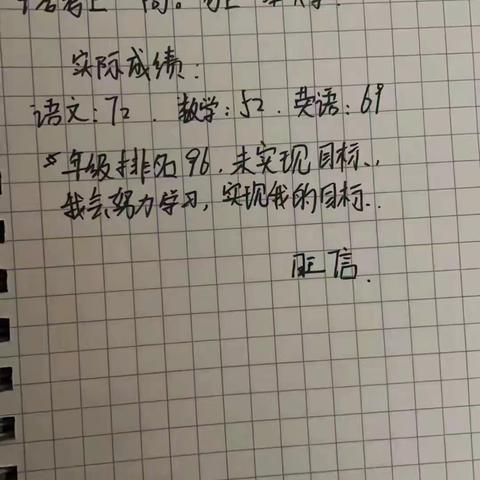 实际成绩：
语文：72．数学：52．英语：69
年级排名96，未实现目标．，
我会努力学习，实现我的目标．．